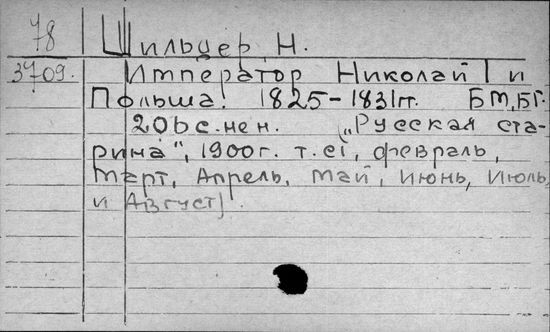 78 Шильдер, Н.
3709. Император Николай I и
Польша. 1825-1831гг. БМ,БГ.
206с.нен. („Русская ста-
рина", 1900г. т. CI, февраль,
Март, Апрель, Май, Июнь, Июль
и Август).